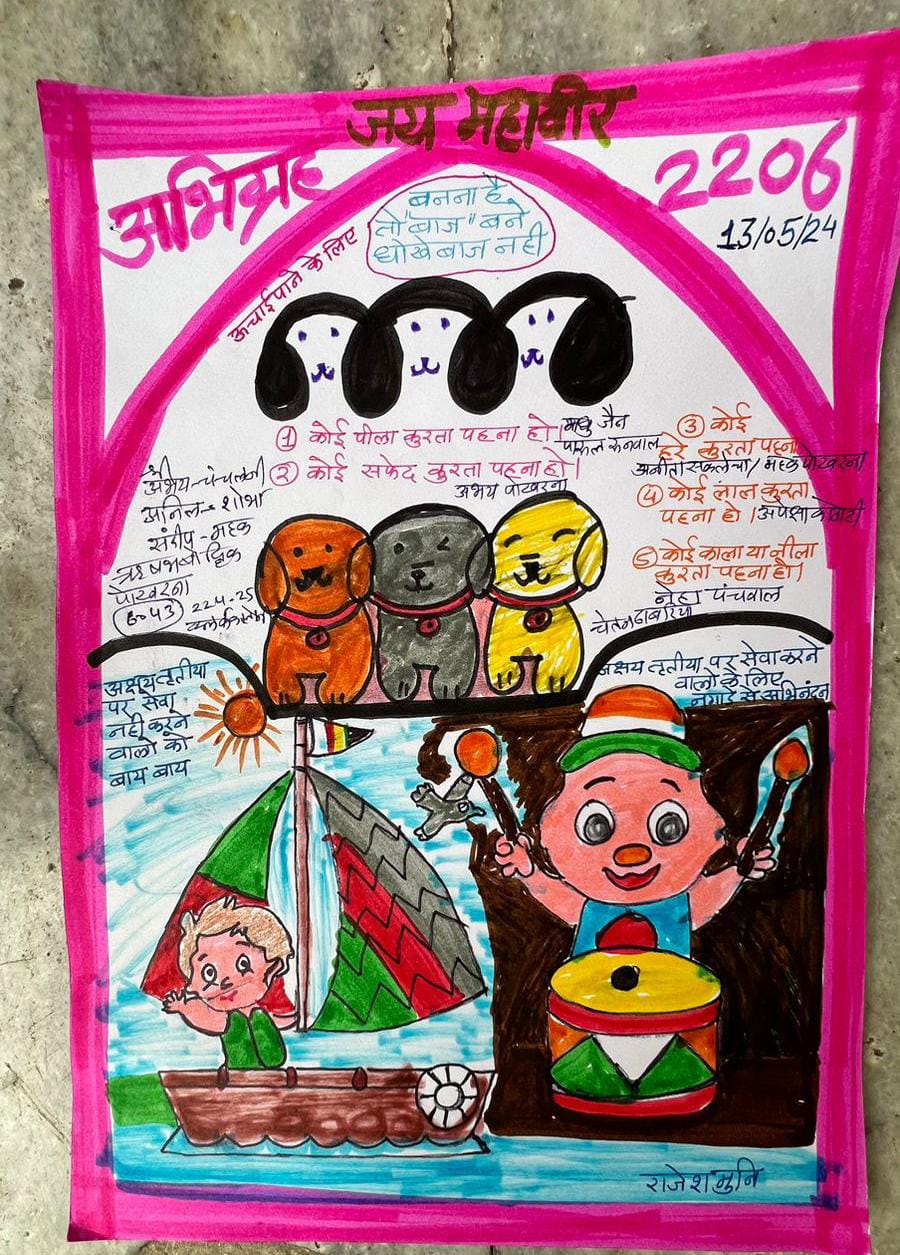 जय महावीर
अभिग्रह
2206
13/05/24
बनना है
तो "बाज" बने
धोखेबाज नही
ऊचाई पाने के लिए
① कोई पीला कुरता पहना हो।
मधु जैन
पारूल रुनवाल
② कोई सफेद कुरता पहना हो।
अभय पोखरना
③ कोई
हरे कुरता पहना
अनीता सकलेचा / महक पोखरना
④ कोई लाल कुरता
पहना हो। अपेक्षा
⑤ कोई काला या नीला
कुरता पहना हो।
नेहा पंचवाल
चेतना डाबरिया
श्री
अभय-चंचलजी
अनिल-शोभा
संदीप-महक
ऋषभ
पोखरना
43
अक्षय तृतीया
पर सेवा
नही करने
वालो को
बाय बाय
अक्षय तृतीया पर सेवा करने
वालो के लिए
नगाडे से अभिनंदन
राजेश मुनि